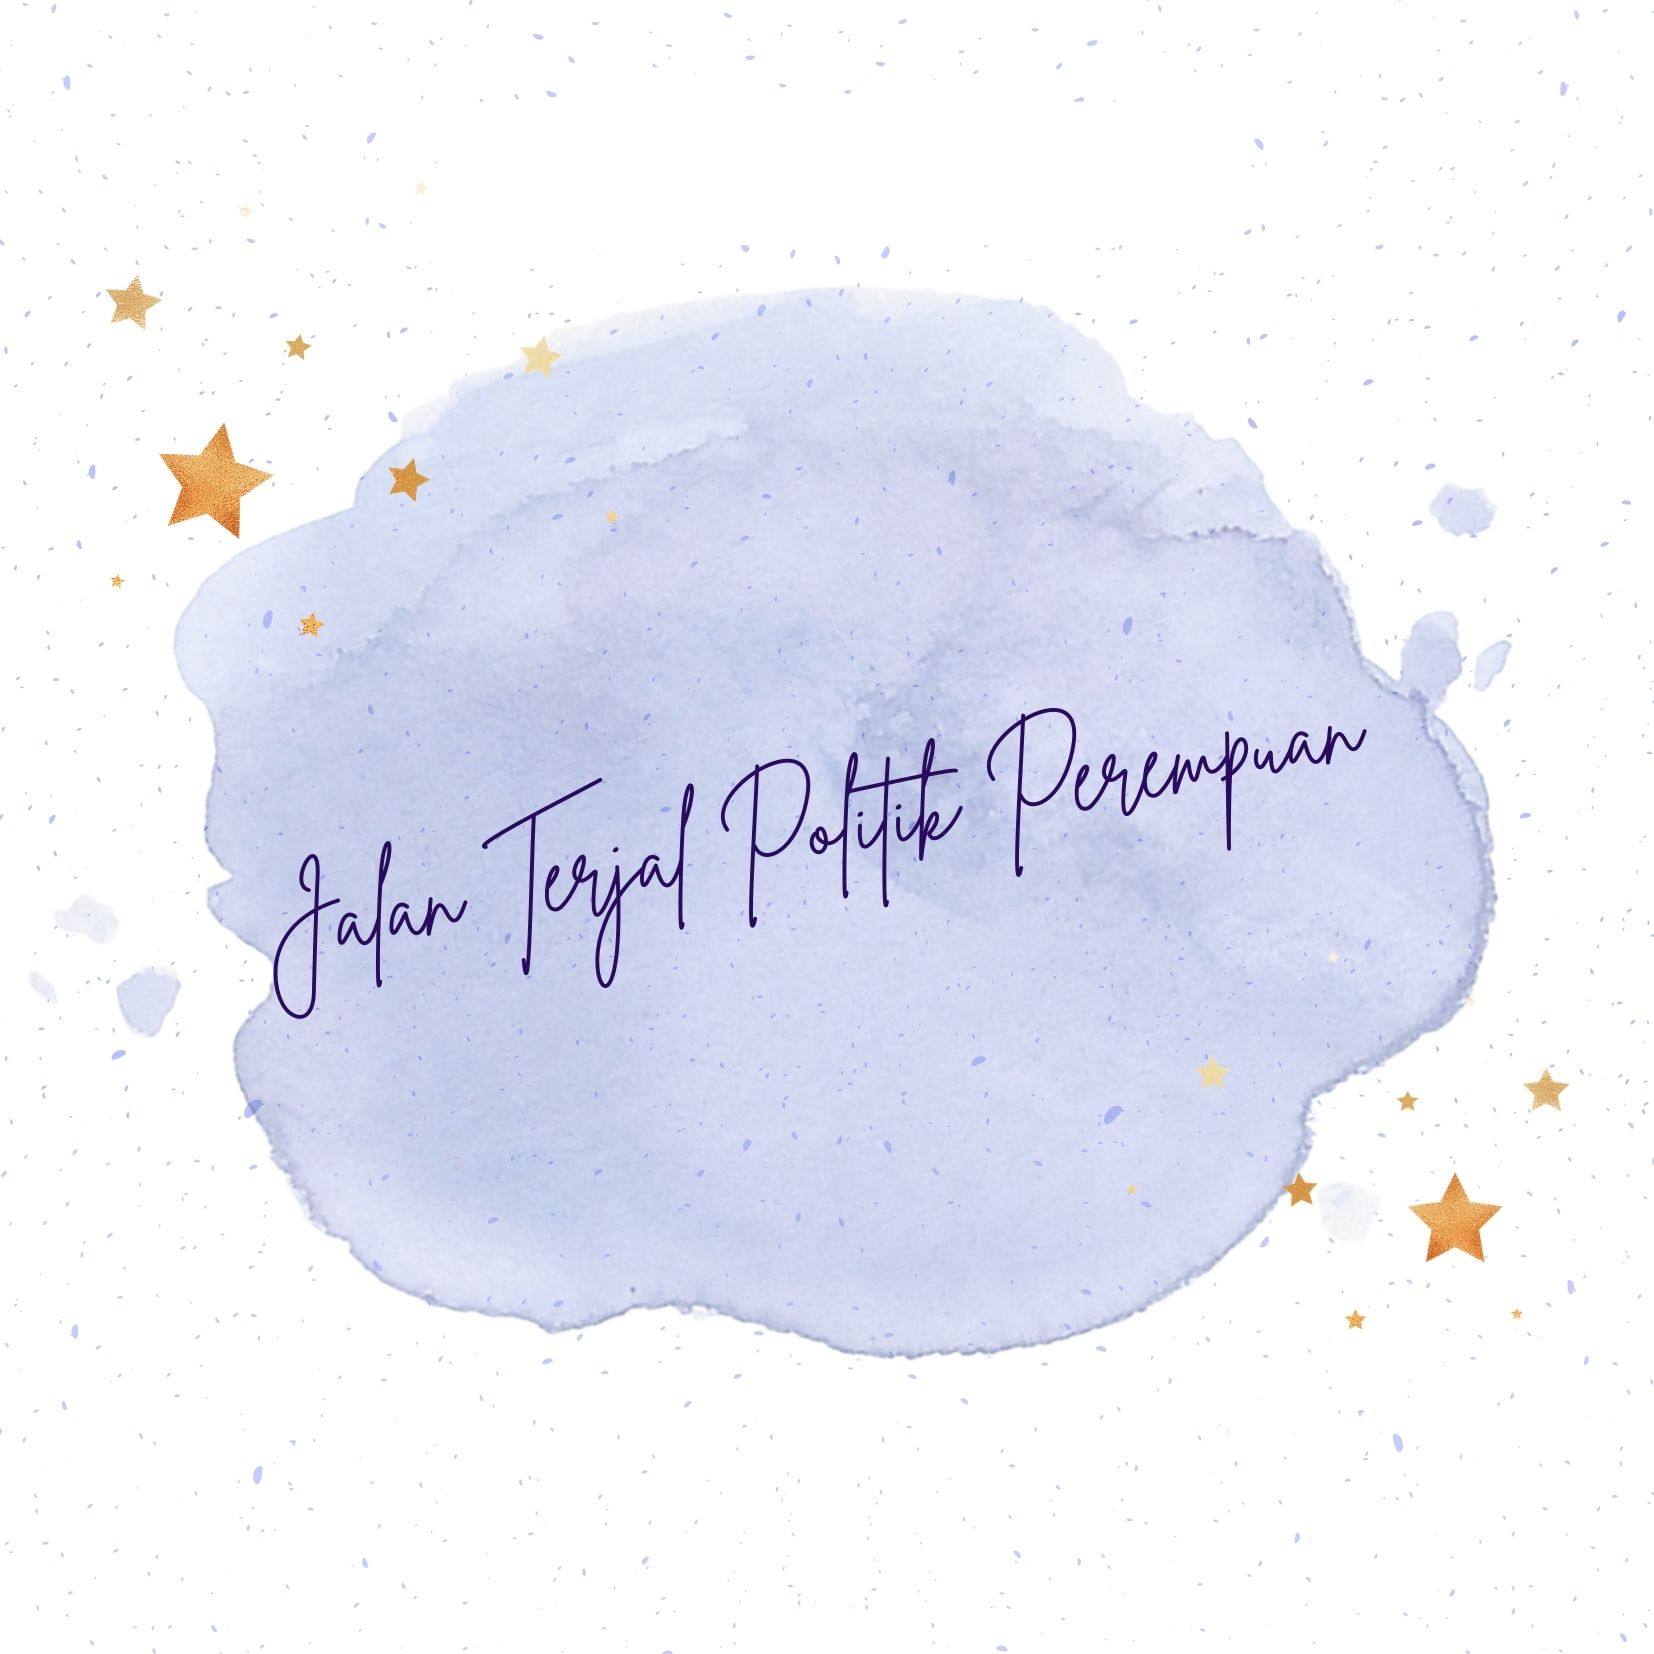 Jalan Terjal Politik Perempuan